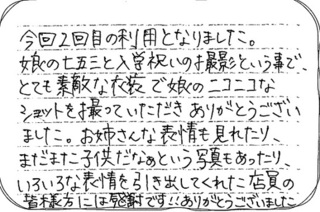 今回2回目の利用となりました。
娘の七五三と入学祝いのお撮影という事で、
とても素敵な衣装で娘のニコニコな
ショットをお撮っていただきありがとうござい
ました。お姉さんな表情も見れたり、
まだまだ子供だなぁという写真もあったり、
いろいろな表情を引き出してくれた店員の
皆様方には感謝です!!ありがとうございました